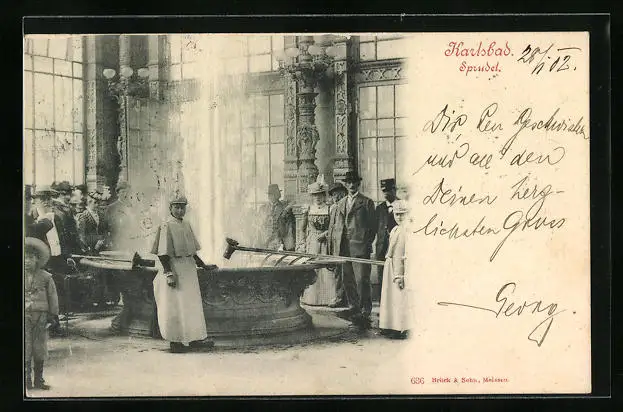 Karlsbad.
Sprudel.
20/V 02.
Dir, den Geschwistern
und all den
Deinen herz-
lichsten Gruss
Georg.
686 Brück & Sohn, Meissen.